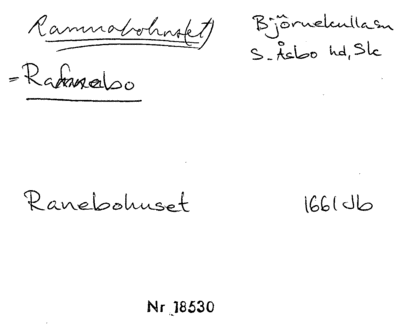 Rammabohuset)
Björnekulla sn
S. Åsbo hd, Sk
= Ramnebo
Ranebohuset 1661 Jb
Nr 18530